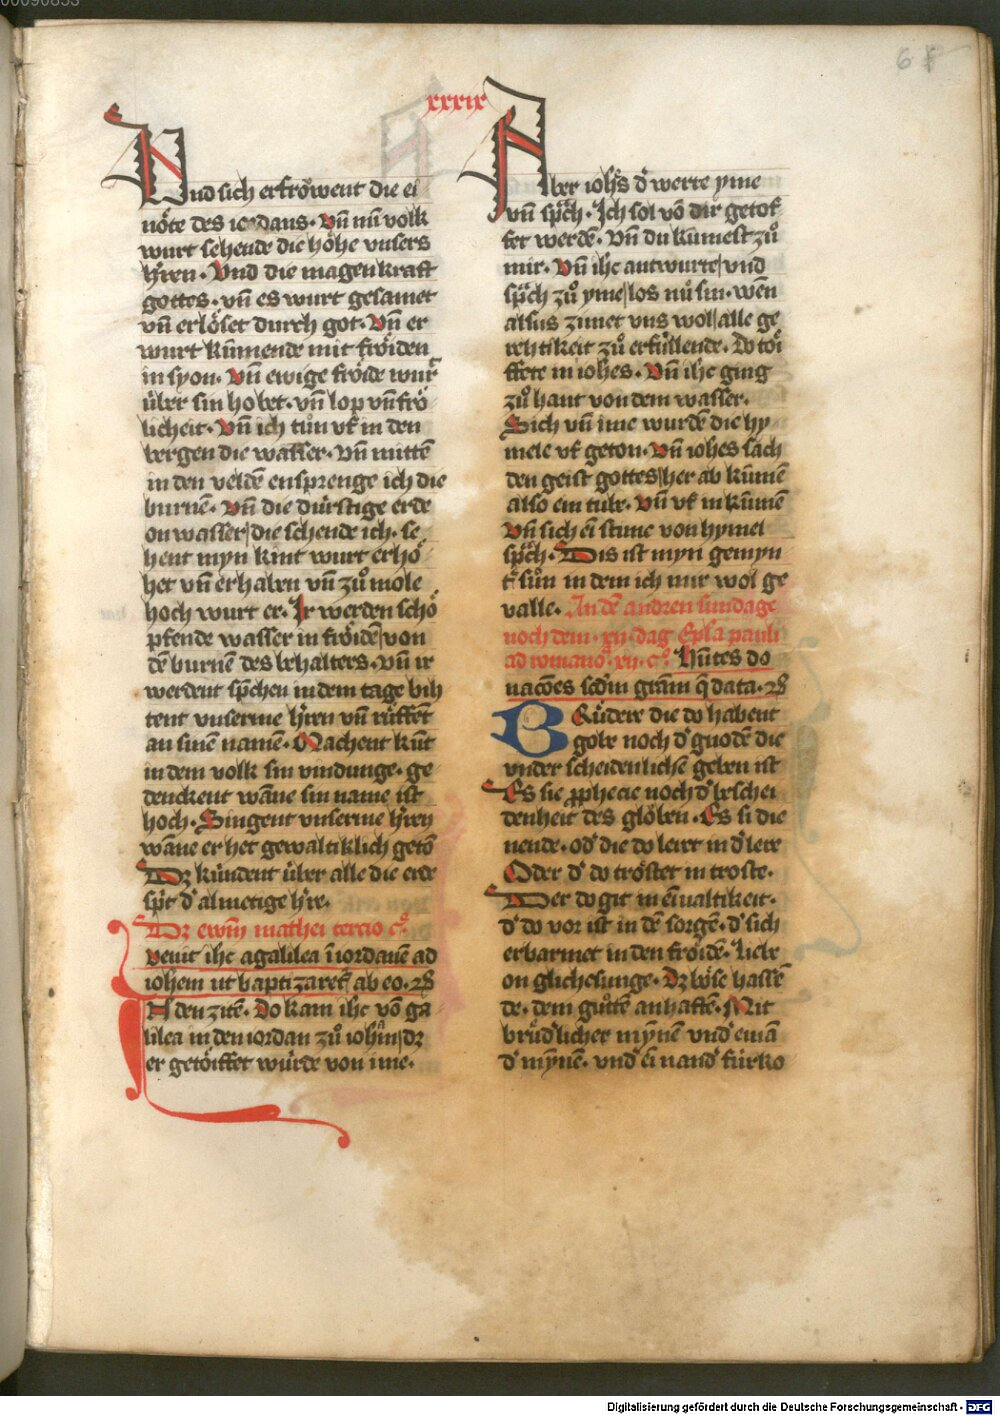 00090855
68
xxxix
Vnd sich erfröwent die ei
nöte des iordans · vñ mī volk
wurt sehende die höhe vnsers
h̄ren · Vnd die magenkraft
gottes · vñ es wurt gesamet
vñ erlöset durch got · Vñ er
wurt kūmende mit fröiden
in syon · vñ ewige fröide wur̄
über sin hobet · vñ lop vñ frö
licheit · Vñ ich tůn vf in den
bergen die wasser · vñ mittē
in den veldē ensprenge ich die
burnē · vñ die dürstige erde
on wasser die sehende ich · se
hent myn kint wurt erhö
het vñ erhaben vñ zů mole
hoch wurt er · Ir werden schö
pfende wasser in fröidē von
dē burnē des behalters · vñ ir
werdent sp̄chen in dem tage bih
tent vnserme h̄ren vñ rüffēt
an sinē namē · Machent kūt
in dem volk sin vindunge · ge
denckent wāne sin name ist
hoch · Singent vnserme h̄ren
wāne er het gewaltiklich getō
Dz kündent über alle die erde
sp̄t d' almetige h̄re ·
Dz ewm̄ mathei tercio c°
venit ihc a galilea ī iordanē ad
iohem ut baptizaret̄ ab eo ·
IN den zitē · Do kam ihc vō ga
lilea in den iordan zů iohm̄ dz
er getöiffet würde von ime ·
Aber ioh̄s d' werte yme
vñ sp̄ch · Ich sol vō dir getof
fet werdē · vñ du kūmest zů
mir · Vñ ihc antwurte vnd
sp̄ch zů yme los nū sin · wēn
alsus zimet vns wol alle ge
rehtikeit zů erfüllende · Do töi
ffete in iohes · Vñ ihc ging
zů hant von dem wasser ·
Sich vñ ime wurdē die hy
mele vf geton · vñ iohes sach
den geist gottes her ab kūmē
also ein tube · Vñ vf in kūmē
Vñ sich ei stime von hymel
sp̄ch · Dis ist myn gemyn
t̄ sůn in dem ich mir wol ge
valle · An dē andren sundage
noch dem · xii · dag Epl̄a pauli
ad romano̧ · xii · c° · Hūtes do
nacōes scd̄m grām q̄ data ·
BRůdere die do habent
gobe noch d' gnodē die
vnder scheidenlichē geben ist
Es sie p̄phecie noch d' beschei
denheit des glöben · Es si die
nende · od' die do lert in d' lere
Oder d' do tröstet in troste ·
Der do git in einualtikeit ·
d' do vor ist in dē sorgē · d' sich
erbarmet in den fröidē · liebe
on glichesunge · Dz böse hassē
de · dem gůtē anhaftē · Mit
brüd'licher mȳnē vnd einā
d' mȳnē · vnd ei nand' fürko
Digitalisierung gefördert durch die Deutsche Forschungsgemeinschaft - DFG